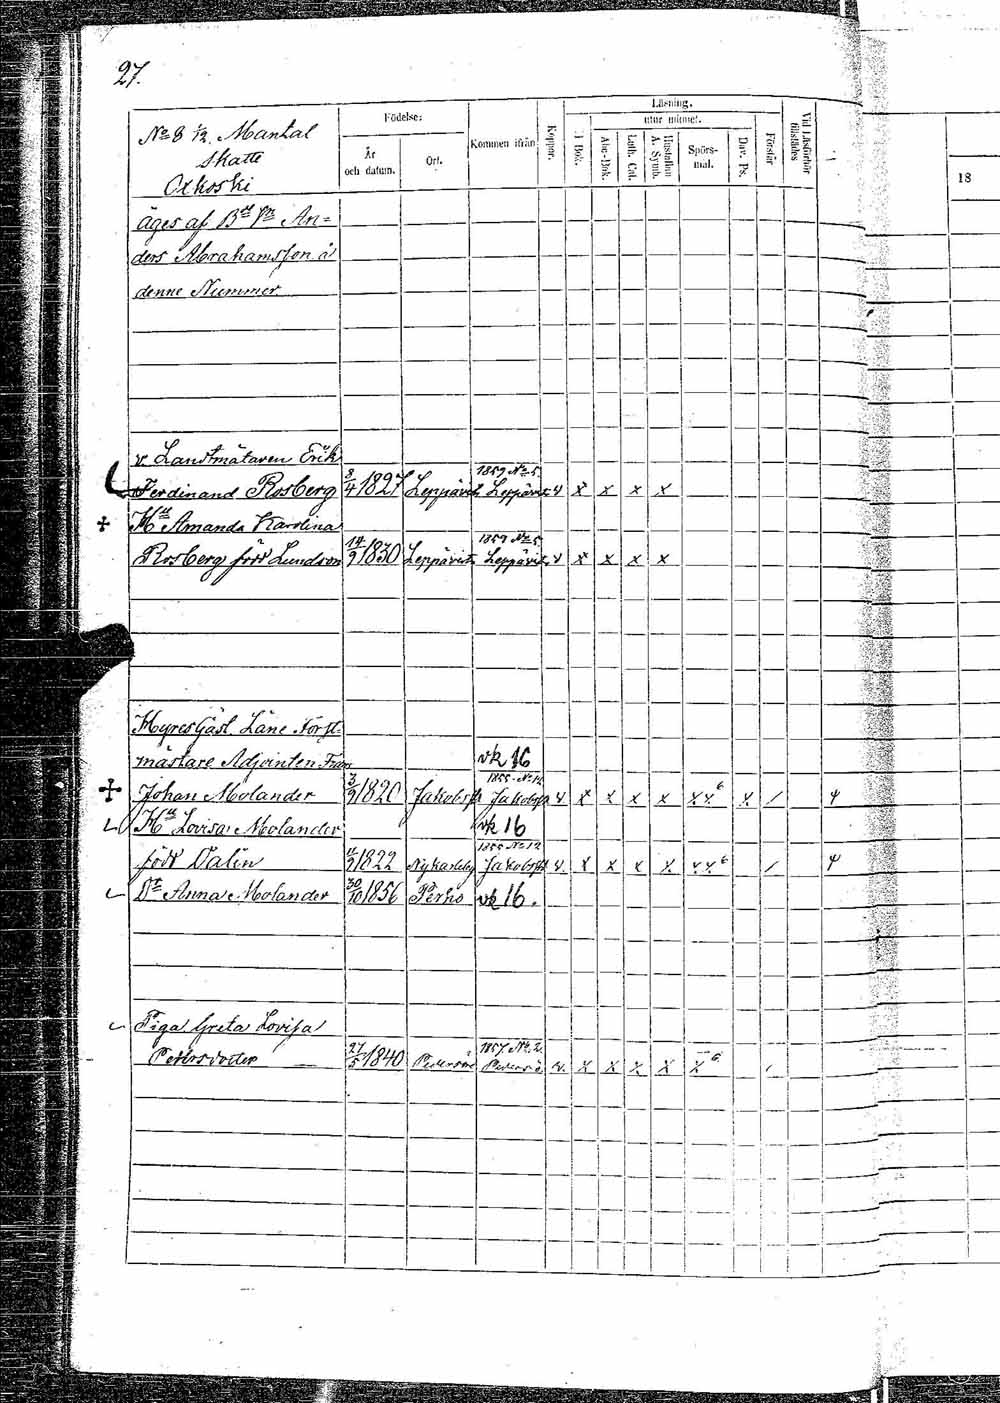 27.
No 8 1/12 Mantal
Skatte
Oxkoski
Födelse:
År
och datum.
Ort.
Kommen ifrån
Koppor.
Läsning,
utur minnet.
I Bok.
Abc-Bok.
Luth. Cat.
Hustaflan
A. Symb.
Spörs-
mål.
Dav. Ps.
Förstår
Vid Läsförhör
tillstädes
18
äges af Bd Sn An=
ders Abrahamsson å
denne Nummer
v. Landtmätaren Erik
Ferdinand Rosberg 8/4 1827 Leppävirt. 1859 No 5 Leppävirt. v x x x x
Hu Amanda Karolina
Rosberg född Lundson 14/9 1830 Leppävirt. 1859 No 5 Leppävirt. v x x x x
HyresGäst Läne Forst-
mästare Adjointen Frans vk 16
Johan Molander 3/9 1820 Jakobst 1855 No 12 Jakobst v x x x x x x 6 x /
Hu Lovisa Molander vk 16
född Dalin 11/9 1822 Nykarleby 1855 No 12 Jakobst v. x x x x x x 6 /
Dr Anna Molander 30/10 1856 Perho vk 16.
Piga Greta Lovisa
Pettersdotter 27/5 1840 Pedersöre 1857 No 2. Pedersö v. x x x x x 6 /